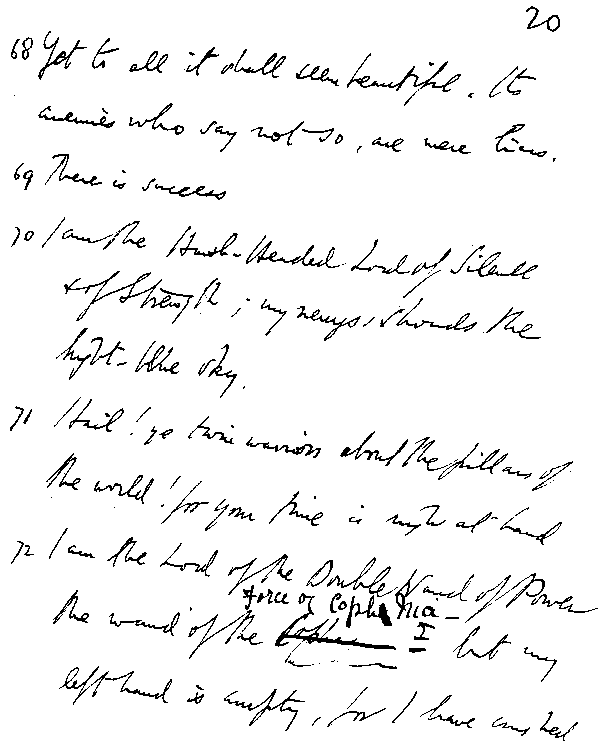 20
68 Yet to all it shall seem beautiful. Its
enemies who say not so, are mere liars.
69 There is success
70 I am the Hawk-Headed Lord of Silence
& of Strength; my nemyss shrouds the
night-blue sky.
71 Hail! ye twin warriors about the pillars of
the world! for your time is nigh at hand
72 I am the Lord of the Double Wand of Power
Force of Coph Nia
the wand of the Coph I but my
left hand is empty, for I have crushed